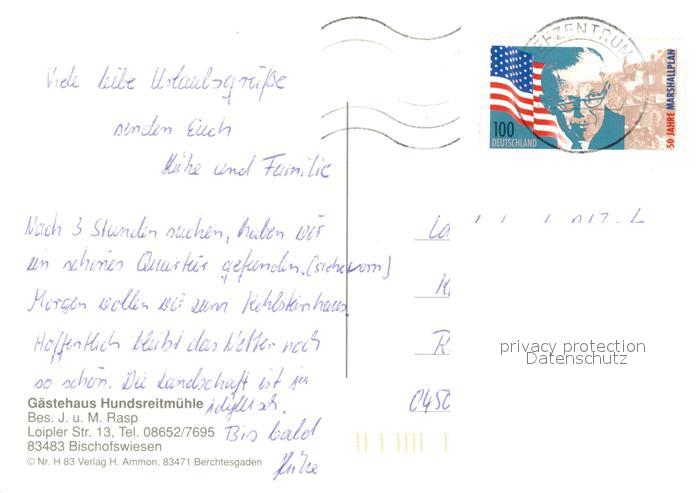 Viele liebe Urlaubsgrüße
senden Euch
und Familie
Nach 3 Stunden suchen, haben wir
ein schönes Quartier gefunden. (siehe vorn)
Morgen wollen wir zum Kehlsteinhaus.
Hoffentlich bleibt das Wetter noch
so schön. Die Landschaft ist ja
idyllisch.
Bis bald
Gästehaus Hundsreitmühle
Bes. J. u. M. Rasp
Loipler Str. 13, Tel. 08652/7695
83483 Bischofswiesen
© Nr. H 83 Verlag H. Ammon, 83471 Berchtesgaden
EFZENTRUM
100
DEUTSCHLAND
50 JAHRE MARSHALLPLAN
privacy protection
Datenschutz